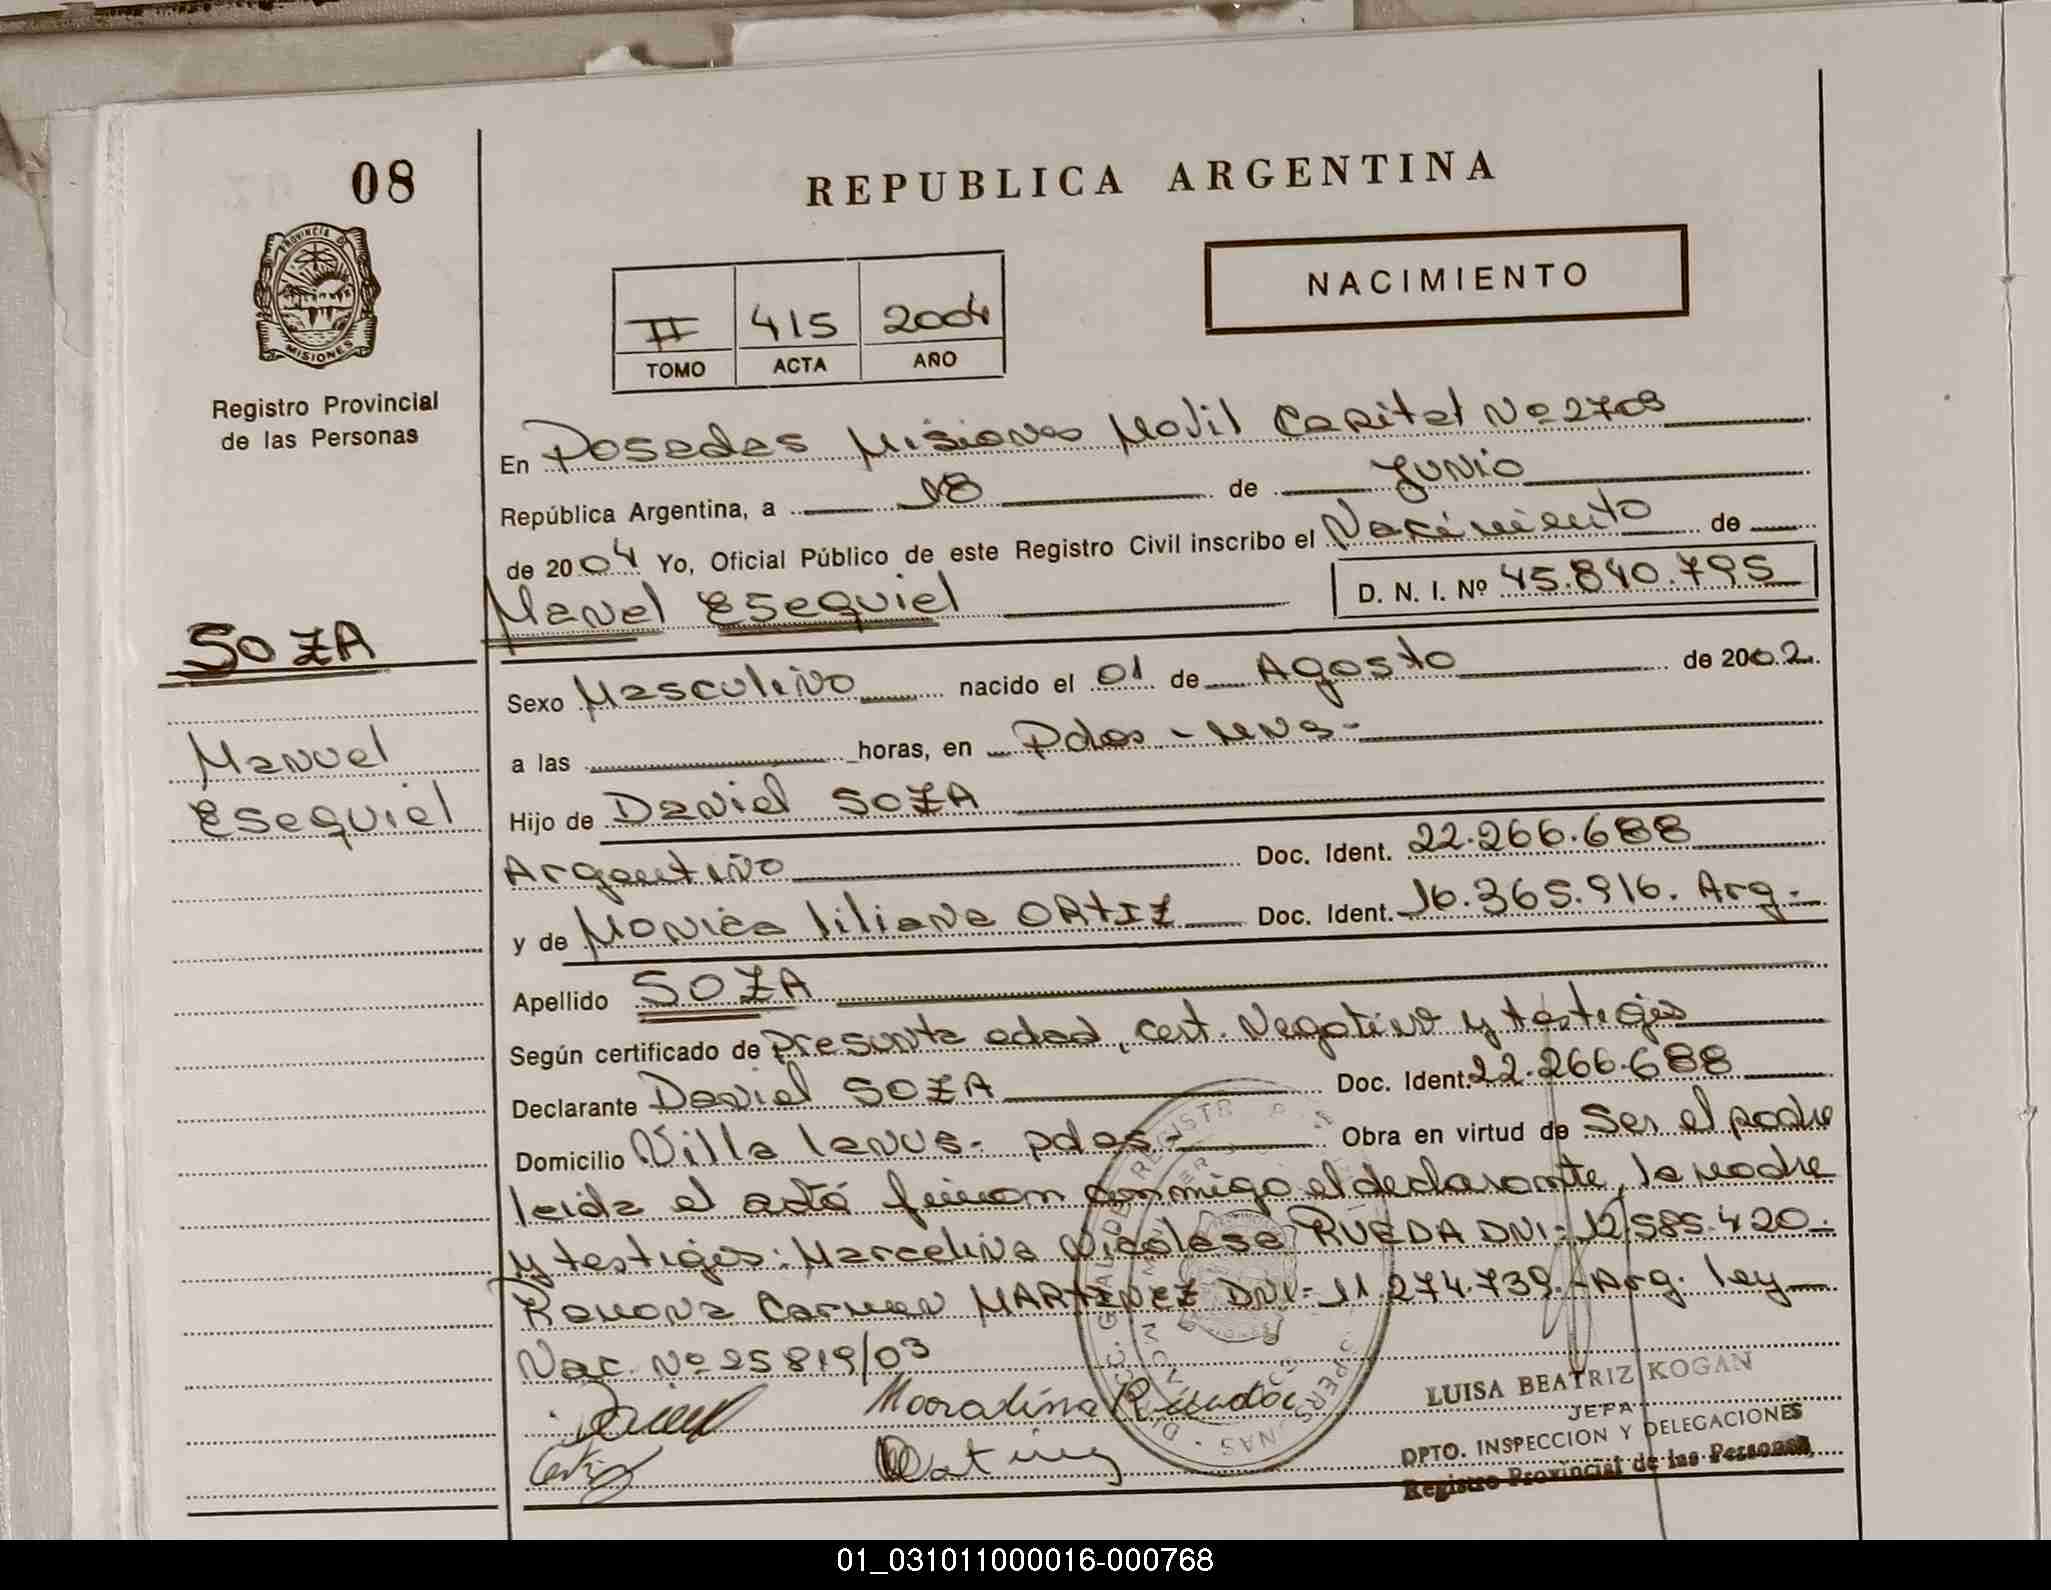 08
REPUBLICA ARGENTINA
PROVINCIA DE
MISIONES
NACIMIENTO
II 415 2004
TOMO ACTA AÑO
Registro Provincial
de las Personas
En Posadas Misiones Movil Capital Nº 2709
República Argentina, a 18 de Junio
de 2004 Yo, Oficial Público de este Registro Civil inscribo el Nacimiento de
Manuel Esequiel D. N. I. Nº 45.840.795
SOZA
Manuel
Esequiel
Sexo Masculino nacido el 01 de Agosto de 2002.
a las horas, en Pdas - Mns -
Hijo de Daniel SOZA
Argentino Doc. Ident. 22.266.688
y de Monica liliana ORTIZ Doc. Ident. 16.365.916. Arg.-
Apellido SOZA
Según certificado de presunta edad, cert. Negativo y testigos
Declarante Daniel SOZA Doc. Ident. 22.266.688
Domicilio Villa lanus - pdas - Obra en virtud de Ser el padre
leida el acta firman conmigo el declarante, la madre
y testigos: Marcelina Nicolasa RUEDA DNI- 12.585.420-
Ramona Carmen MARTINEZ DNI- 11.274.739.- Arg. ley
Nac. Nº 25819/03
LUISA BEATRIZ KOGAN
JEFA
DPTO. INSPECCION Y DELEGACIONES
Registro Provincial de las Personas
01_031011000016-000768